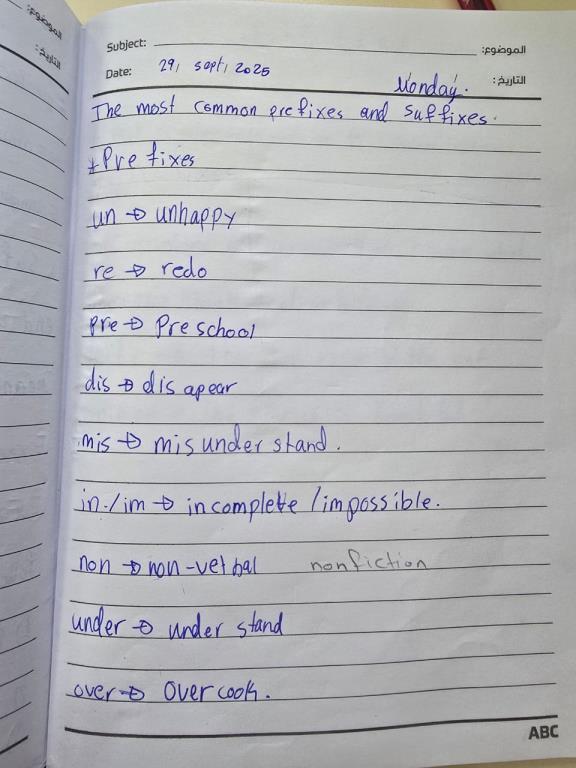 Subject: الموضوع:
Date: 29, sept, 2025 التاريخ:
Monday.
The most common prefixes and suffixes.
*Prefixes
un → unhappy
re → redo
pre → Preschool
dis → dis apear
mis → mis under stand.
in./im → in complete /impossible.
non → non-verbal nonfiction
under → under stand
over → Over cook.
ABC
الموضوع:
التاريخ: